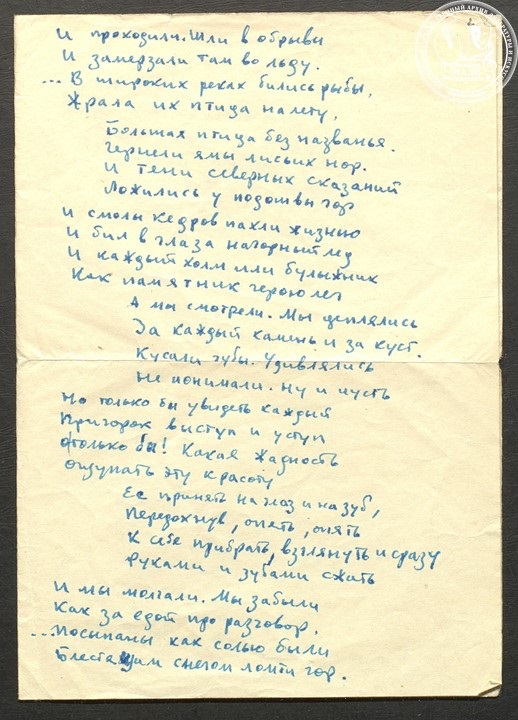 И проходили. Шли в обрывы
И замерзали там во льду.
... В широких реках бились рыбы,
Жрала их птица на лету,
Большая птица без названья.
Чернели ямы лисьих нор.
И тени северных сказаний
Ложились у подошвы гор
И смолы кедров пахли жизнью
И бил в глаза нагорный лед
И каждый холм или булыжник
Как памятник герою лег
А мы смотрели. Мы цеплялись
За каждый камень и за куст.
Кусали губы. Удивлялись
Не понимали. Ну и пусть
Но только бы увидеть каждый
Пригорок выступ и уступ
только бы! Какая жадность
Ощупать эту красоту
Ее принять на глаз и на зуб,
Передохнув, опять, опять
К себе прибрать, взглянуть и сразу
Руками и зубами сжать
И мы молчали. Мы забыли
Как за едой про разговор.
... Посыпаны как солью были
Блестящим снегом ломти гор.